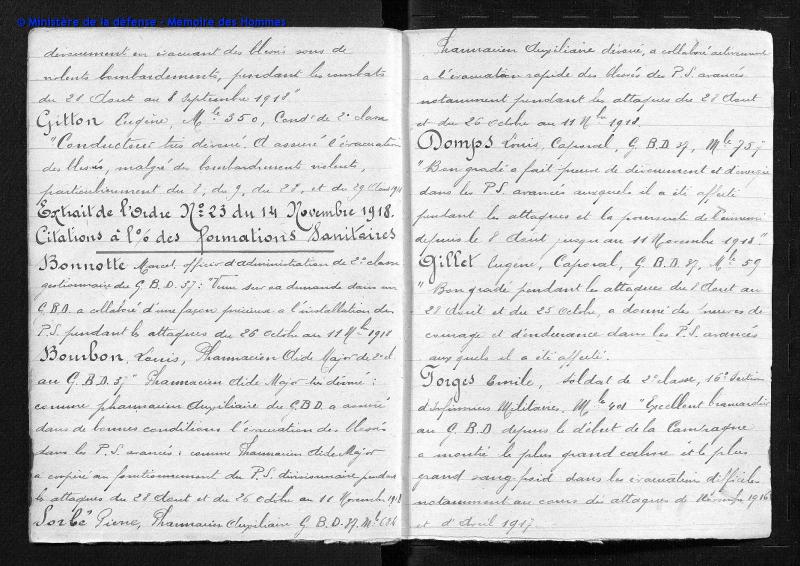 © Ministère de la défense - Mémoire des Hommes
dévouement en évacuant des blessés sous de
violents bombardements, pendant les combats
du 28 Aout au 8 Septembre 1918"
Gitton Eugène, Mle 350, Condr de 2e classe
"Conducteur très dévoué. A assuré l'évacuation
des blessés, malgré des bombardements violents,
particulièrement du 8, du 9, du 28, et du 29 Aout 1918
Extrait de l'Ordre No 23 du 14 Novembre 1918.
Citations à l'O/ des formations Sanitaires
Bonnotte Marcel, officier d'administration de 2e classe
gestionnaire du G.B.D. 37: "Venu sur sa demande dans un
G.B.D. a collaboré d'une façon précieuse à l'installation des
P.S. pendant les attaques du 26 Octobre au 11 Nbre 1918
Bourbon, Louis, Pharmacien Aide Major de 2e cl.
au G.B.D. 37 "Pharmacien Aide Major très dévoué:
comme pharmacien Auxiliaire du G.B.D. a assuré
dans de bonnes conditions l'évacuation des blessés
dans les P.S. avancés: comme Pharmacien Aide Major
a coopéré au fonctionnement du P.S. divisionnaire pendant
les attaques du 28 Aout et du 26 Octobre au 11 Novembre 1918
Sorbé Pierre, Pharmacien Auxiliaire G.B.D. 37. Mle
Pharmacien Auxiliaire dévoué, a collaboré activement
a l'évacuation rapide des blessés des P.S. avancés
notamment pendant les attaques du 28 Aout
et du 26 Octobre au 11 Nbre 1918.
Domps Louis, Caporal, G.B.D. 37, Mle 757
"Bon gradé a fait preuve de dévouement et d'énergie
dans les P.S. avancés auxquels il a été affecté
pendant les attaques et la poursuite de l'ennemi
depuis le 8 Aout jusqu'au 11 Novembre 1918".
Gillet Eugène, Caporal, G.B.D. 37, Mle 59
"Bon gradé pendant les attaques du 8 Aout au
28 Aout et du 25 Octobre, a donné des preuves de
courage et d'endurance dans les P.S. avancés
auxquels il a été affecté.
Forges Emile, Soldat de 2e classe, 16e Section
d'Infirmiers Militaires, Mle 401 "Excellent brancardier
au G.B.D. depuis le début de la Campagne
a montré le plus grand calme et le plus
grand sang froid dans les évacuations difficiles
notamment au cours des attaques de 1916
et d'Avril 1917.